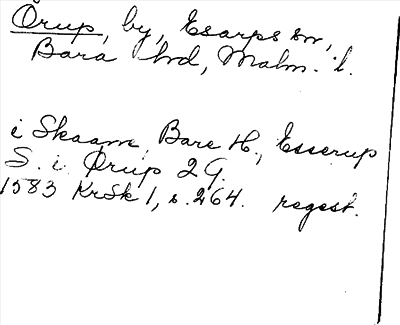 Örup, by, Esarps sn,
Bara hd, Malm. l.
i Skaane, Bare H., Esserup
S. i Ørup 2 G.
1583 KrSk 1, s. 264. regest.